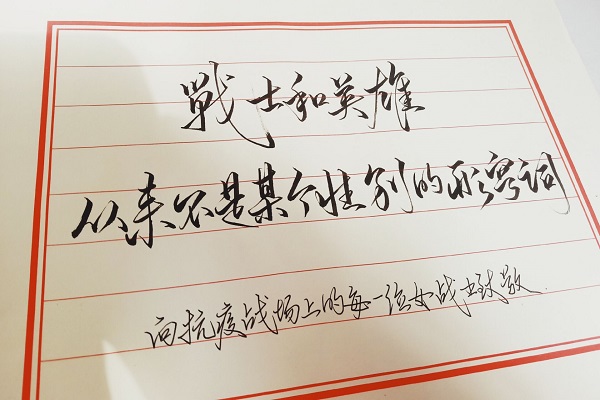 戰士和英雄
从来不是某个性别的形容词
向抗疫战场上的每一位女战士致敬